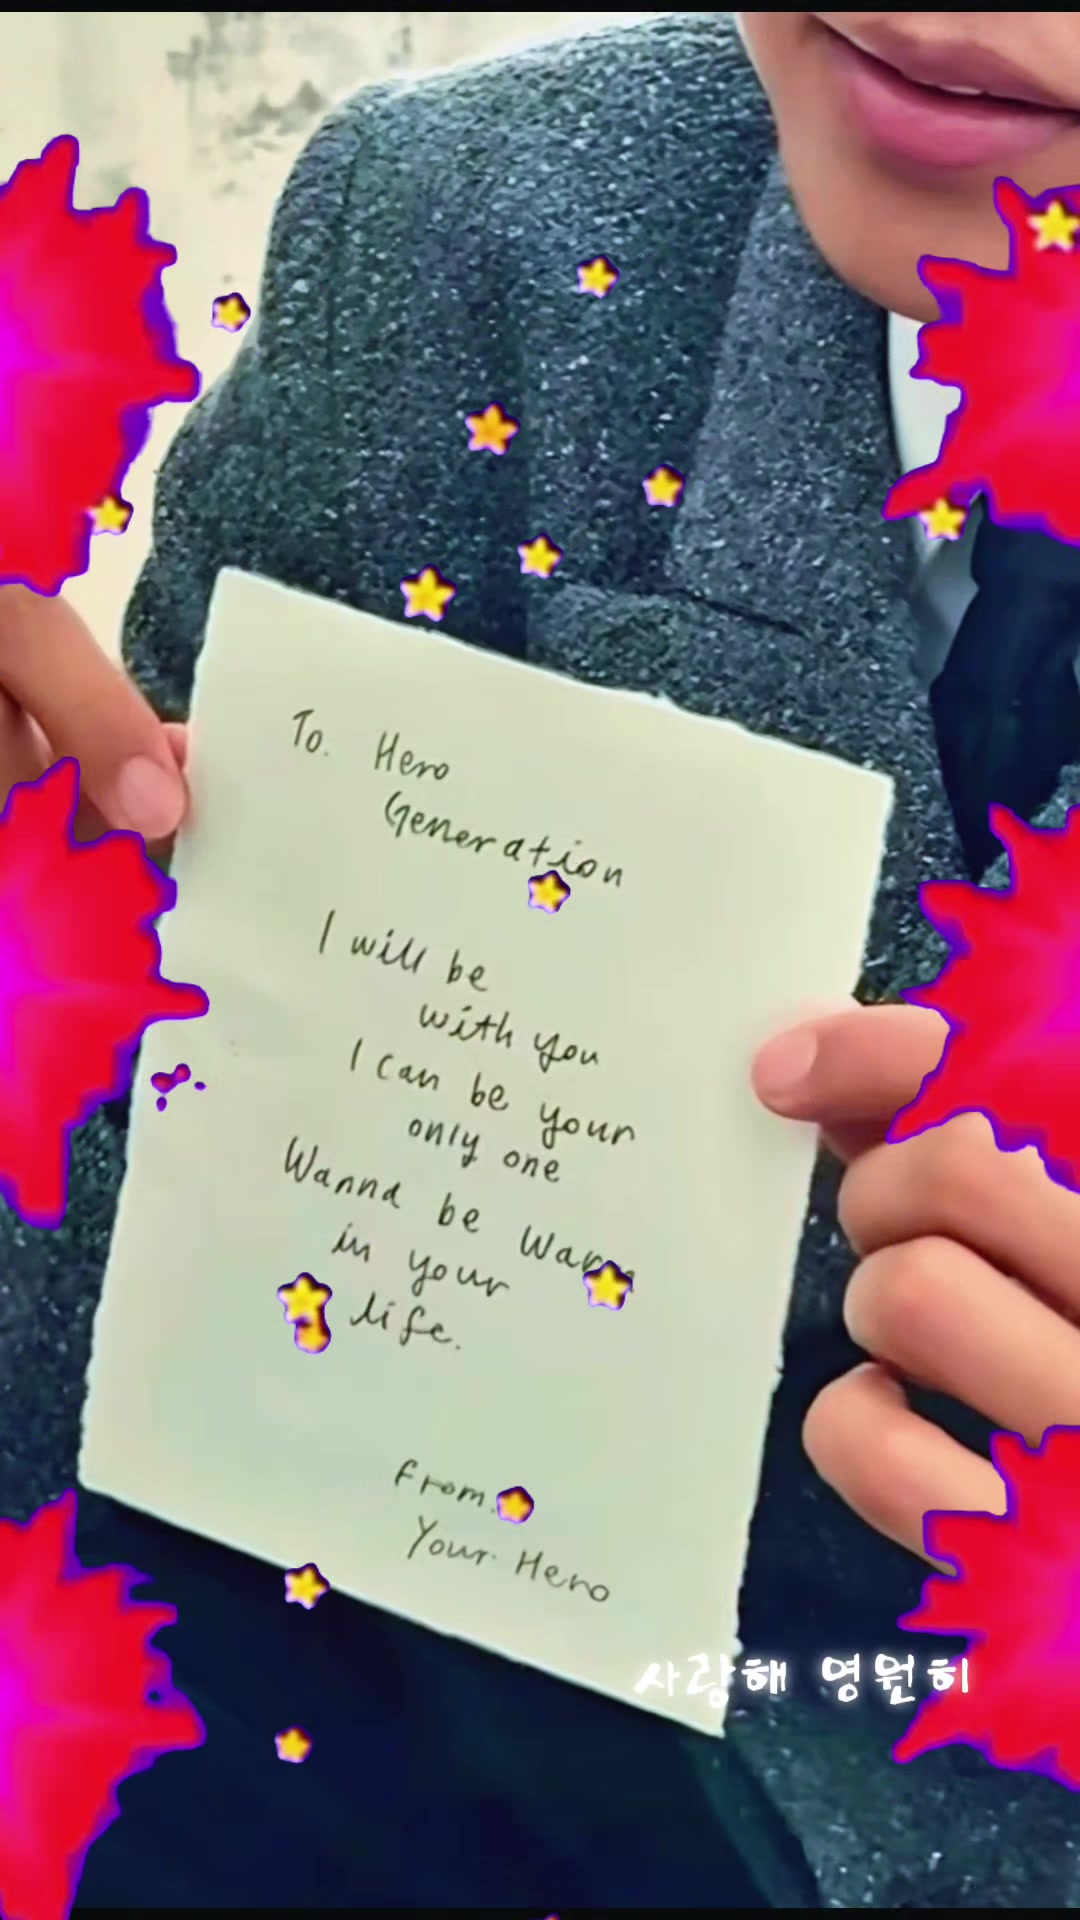 To. Hero
Generation
I will be
with you
I can be your
only one
Wanna be Warm
in your
life.
From.
Your Hero
사랑해 영원히